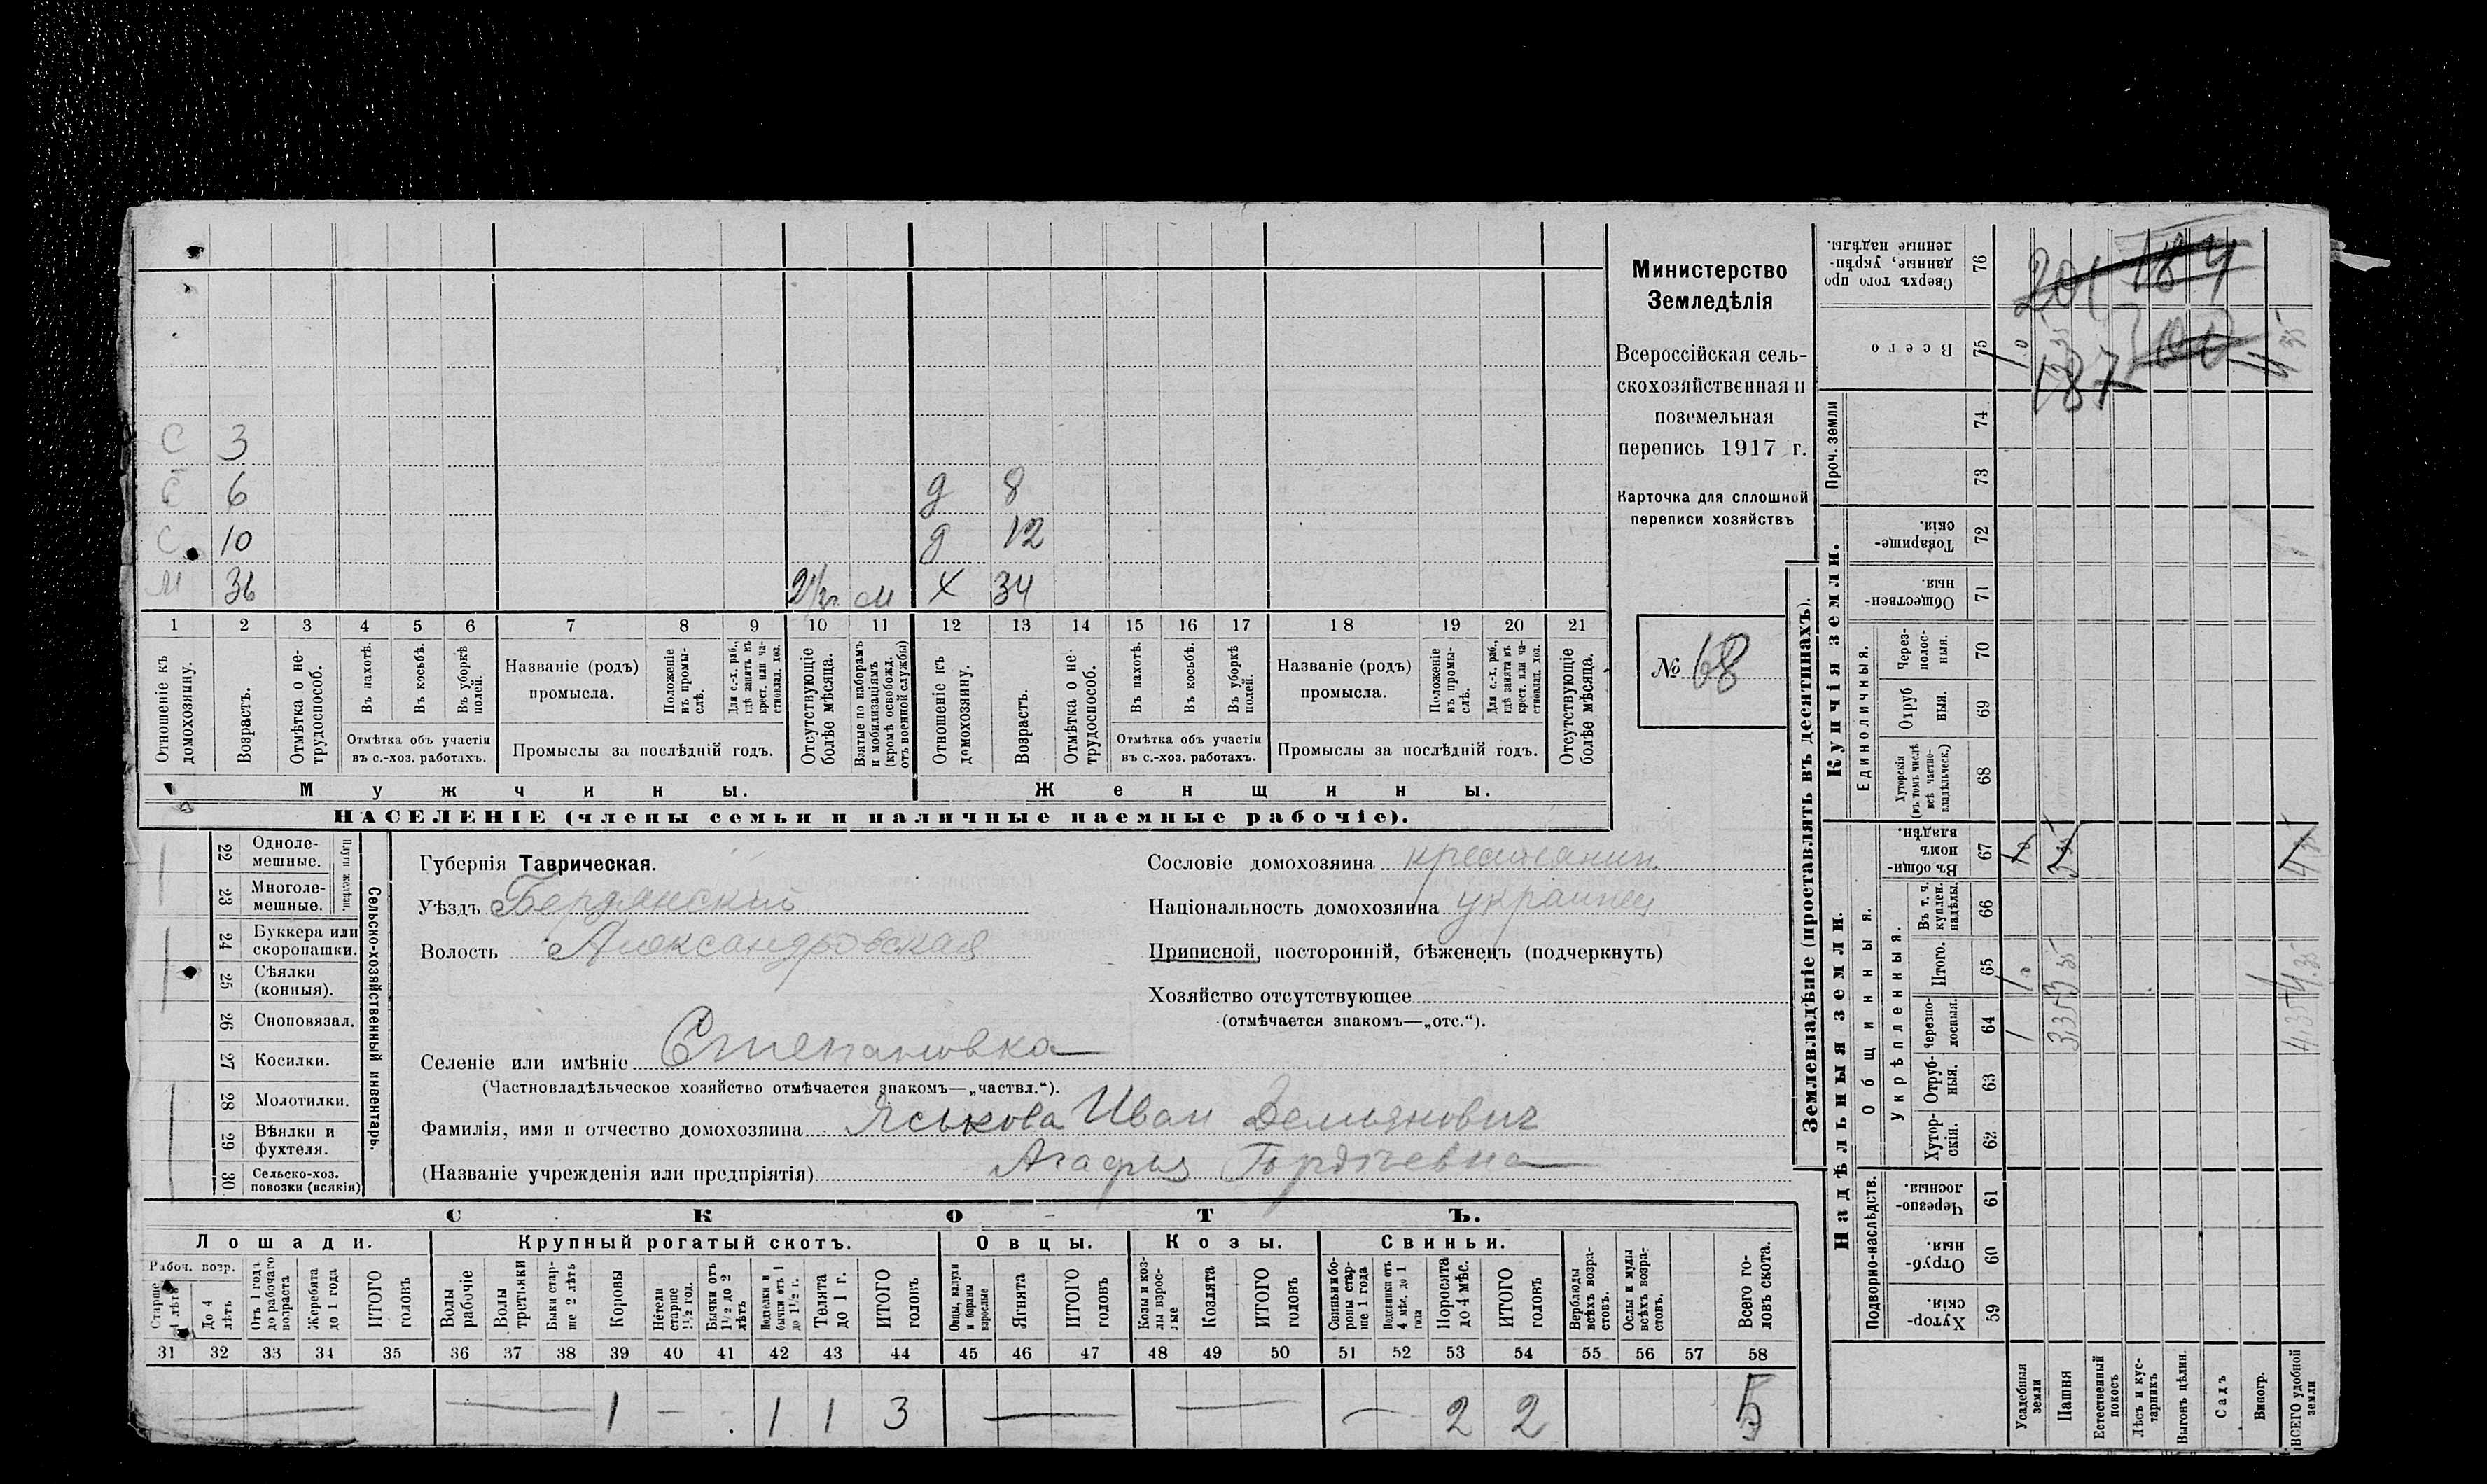 С 3
С 6 д 8
С 10 д 12
М 36 2 1/2 г. М Х 34
1 2 3 4 5 6 7 8 9 10 11 12 13 14 15 16 17 18 19 20 21
Отношеніе къ домохозяину.
Возрастъ.
Отмѣтка о не-
трудоспособ.
Въ пахотѣ.
Въ косьбѣ.
Въ уборкѣ полей.
Отмѣтка объ участіи
въ с.-хоз. работахъ.
Названіе (родъ)
промысла.
Положеніе въ промы-
слѣ.
Для с.-х. раб., гдѣ занятъ въ крест. или ча-
стновлад. хоз.
Промыслы за послѣдній годъ.
Отсутствующіе болѣе мѣсяца.
Взятые по наборамъ и мобилизаціямъ (кромѣ освобожд. отъ военной службы)
Отношеніе къ домохозяину.
Возрастъ.
Отмѣтка о не-
трудоспособ.
Въ пахотѣ.
Въ косьбѣ.
Въ уборкѣ полей.
Отмѣтка объ участіи
въ с.-хоз. работахъ.
Названіе (родъ)
промысла.
Положеніе въ промы-
слѣ.
Для с.-х. раб., гдѣ занята въ крест. или ча-
стновлад. хоз.
Промыслы за послѣдній годъ.
Отсутствующіе болѣе мѣсяца.
Мужчины. Женщины.
НАСЕЛЕНІЕ (члены семьи и наличные наемные рабочіе).
Министерство
Земледѣлія
Всероссійская сель-
скохозяйственная и
поземельная
перепись 1917 г.
Карточка для сплошной
переписи хозяйствъ
№ 68
22 Одноле-
мешные.
23 Многоле-
мешные.
Плуги желѣзн.
24 Буккера или
скоропашки.
25 Сѣялки
(конныя).
26 Сноповязал.
27 Косилки.
28 Молотилки.
29 Вѣялки и
фухтеля.
30 Сельско-хоз.
повозки (всякія)
Сельско-хозяйственный инвентарь.
Губернія Таврическая.
Уѣздъ Бердянскій
Волость Александровская
Селеніе или имѣніе Степановка
(Частновладѣльческое хозяйство отмѣчается знакомъ—„частвл.“).
Фамилія, имя и отчество домохозяина Яськова Иван Демьянович
(Названіе учрежденія или предпріятія) Агафья Гордѣевна
Сословіе домохозяина крестьянин
Національность домохозяина украинец
Приписной, посторонній, бѣженецъ (подчеркнуть)
Хозяйство отсутствующее
(отмѣчается знакомъ—„отс.“).
СКОТЪ.
Лошади. Крупный рогатый скотъ. Овцы. Козы. Свиньи.
Рабоч. возр.
Старше 4 лѣтъ
До 4 лѣтъ
Отъ 1 года до рабочаго возраста
Жеребята до 1 года
ИТОГО головъ
Волы рабочіе
Волы третьяки
Быки стар-
ше 2 лѣтъ
Коровы
Нетели старше 1½ год.
Бычки отъ 1½ до 2 лѣтъ
Подтелки и бычки отъ 1 до 1½ г.
Телята до 1 г.
ИТОГО головъ
Овцы, валухи и бараны взрослые
Ягнята
ИТОГО головъ
Козы и коз-
лы взрос-
лые
Козлята
ИТОГО головъ
Свиньи и бо-
ровы стар-
ше 1 года
Подсвинки отъ 4 мѣс. до 1 года
Поросята до 4 мѣс.
ИТОГО головъ
Верблюды всѣхъ возра-
стовъ.
Ослы и мулы всѣхъ возра-
стовъ.
Всего го-
ловъ скота.
31 32 33 34 35 36 37 38 39 40 41 42 43 44 45 46 47 48 49 50 51 52 53 54 55 56 57 58
— — 1 — 1 1 3 — — — 2 2 5
Землевладѣніе (проставлять въ десятинахъ).
Надѣльныя земли. Купчія земли. Проч. земли
Подворно-наслѣдств.
Общинныя.
Укрѣпленныя.
Единоличныя.
59 Хутор-
скія.
60 Отруб-
ныя.
61 Черезпо-
лосныя.
62 Хутор-
скія.
63 Отруб-
ныя.
64 Черезпо-
лосныя.
65 Итого.
66 Въ т. ч. куплен. надѣлы.
67 Въ общин-
номъ владѣн.
68 Хуторскія (въ томъ числѣ всѣ частно-
владѣльческ.)
69 Отруб
ныя.
70 Через-
полос-
ныя.
71 Обществен-
ныя.
72 Товарище-
скія.
73
74
75 Всего
76 Сверхъ того про
данные, укрѣп-
ленные надѣлы.
Усадебныя земли
Пашня
Естественный покосъ
Лѣсъ и кус-
тарникъ
Выгонъ цѣлин.
Садъ
Виногр.
ВСЕГО удобной земли
201 184
187